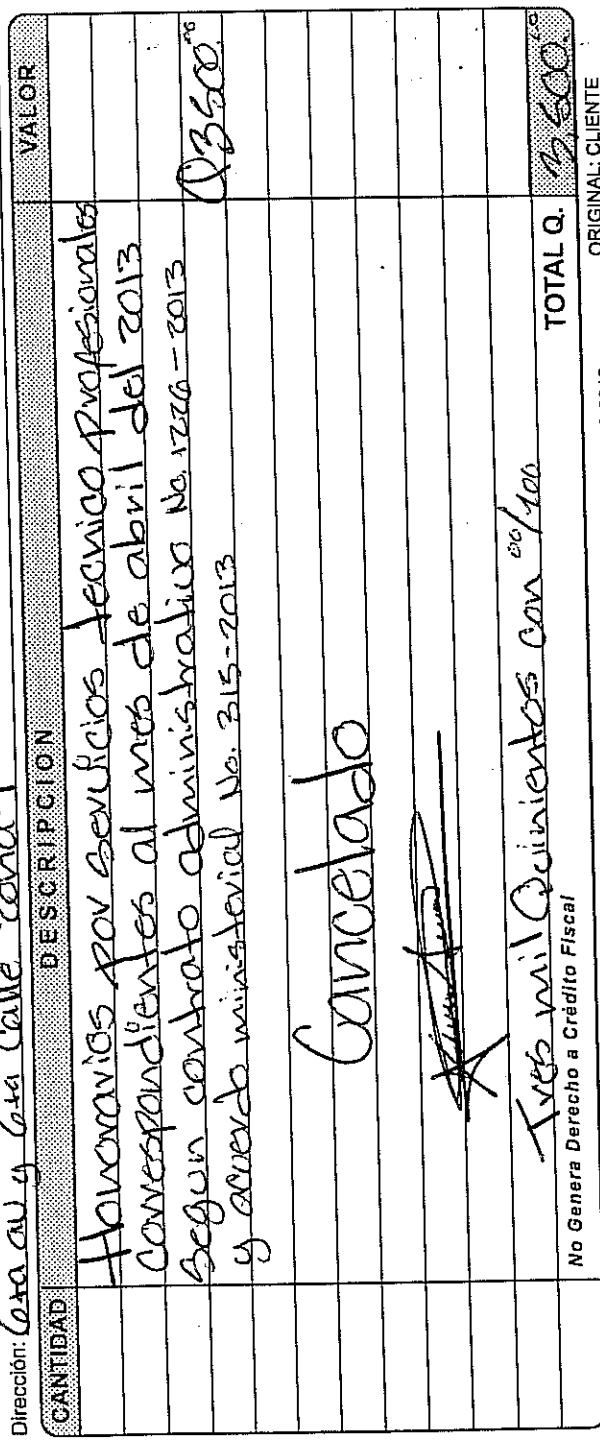 Dirección: 6ta av y 6ta Calle zona 1
CANTIDAD DESCRIPCION VALOR
Honorarios por servicios tecnico profesionales
correspondientes al mes de abril del 2013
segun contrato administrativo No. 1226-2013 Q3500.00
y acuerdo ministerial No. 315-2013
Cancelado
Tres mil Quinientos con 00/100
No Genera Derecho a Crédito Fiscal TOTAL Q. 3,500.00
ORIGINAL: CLIENTE